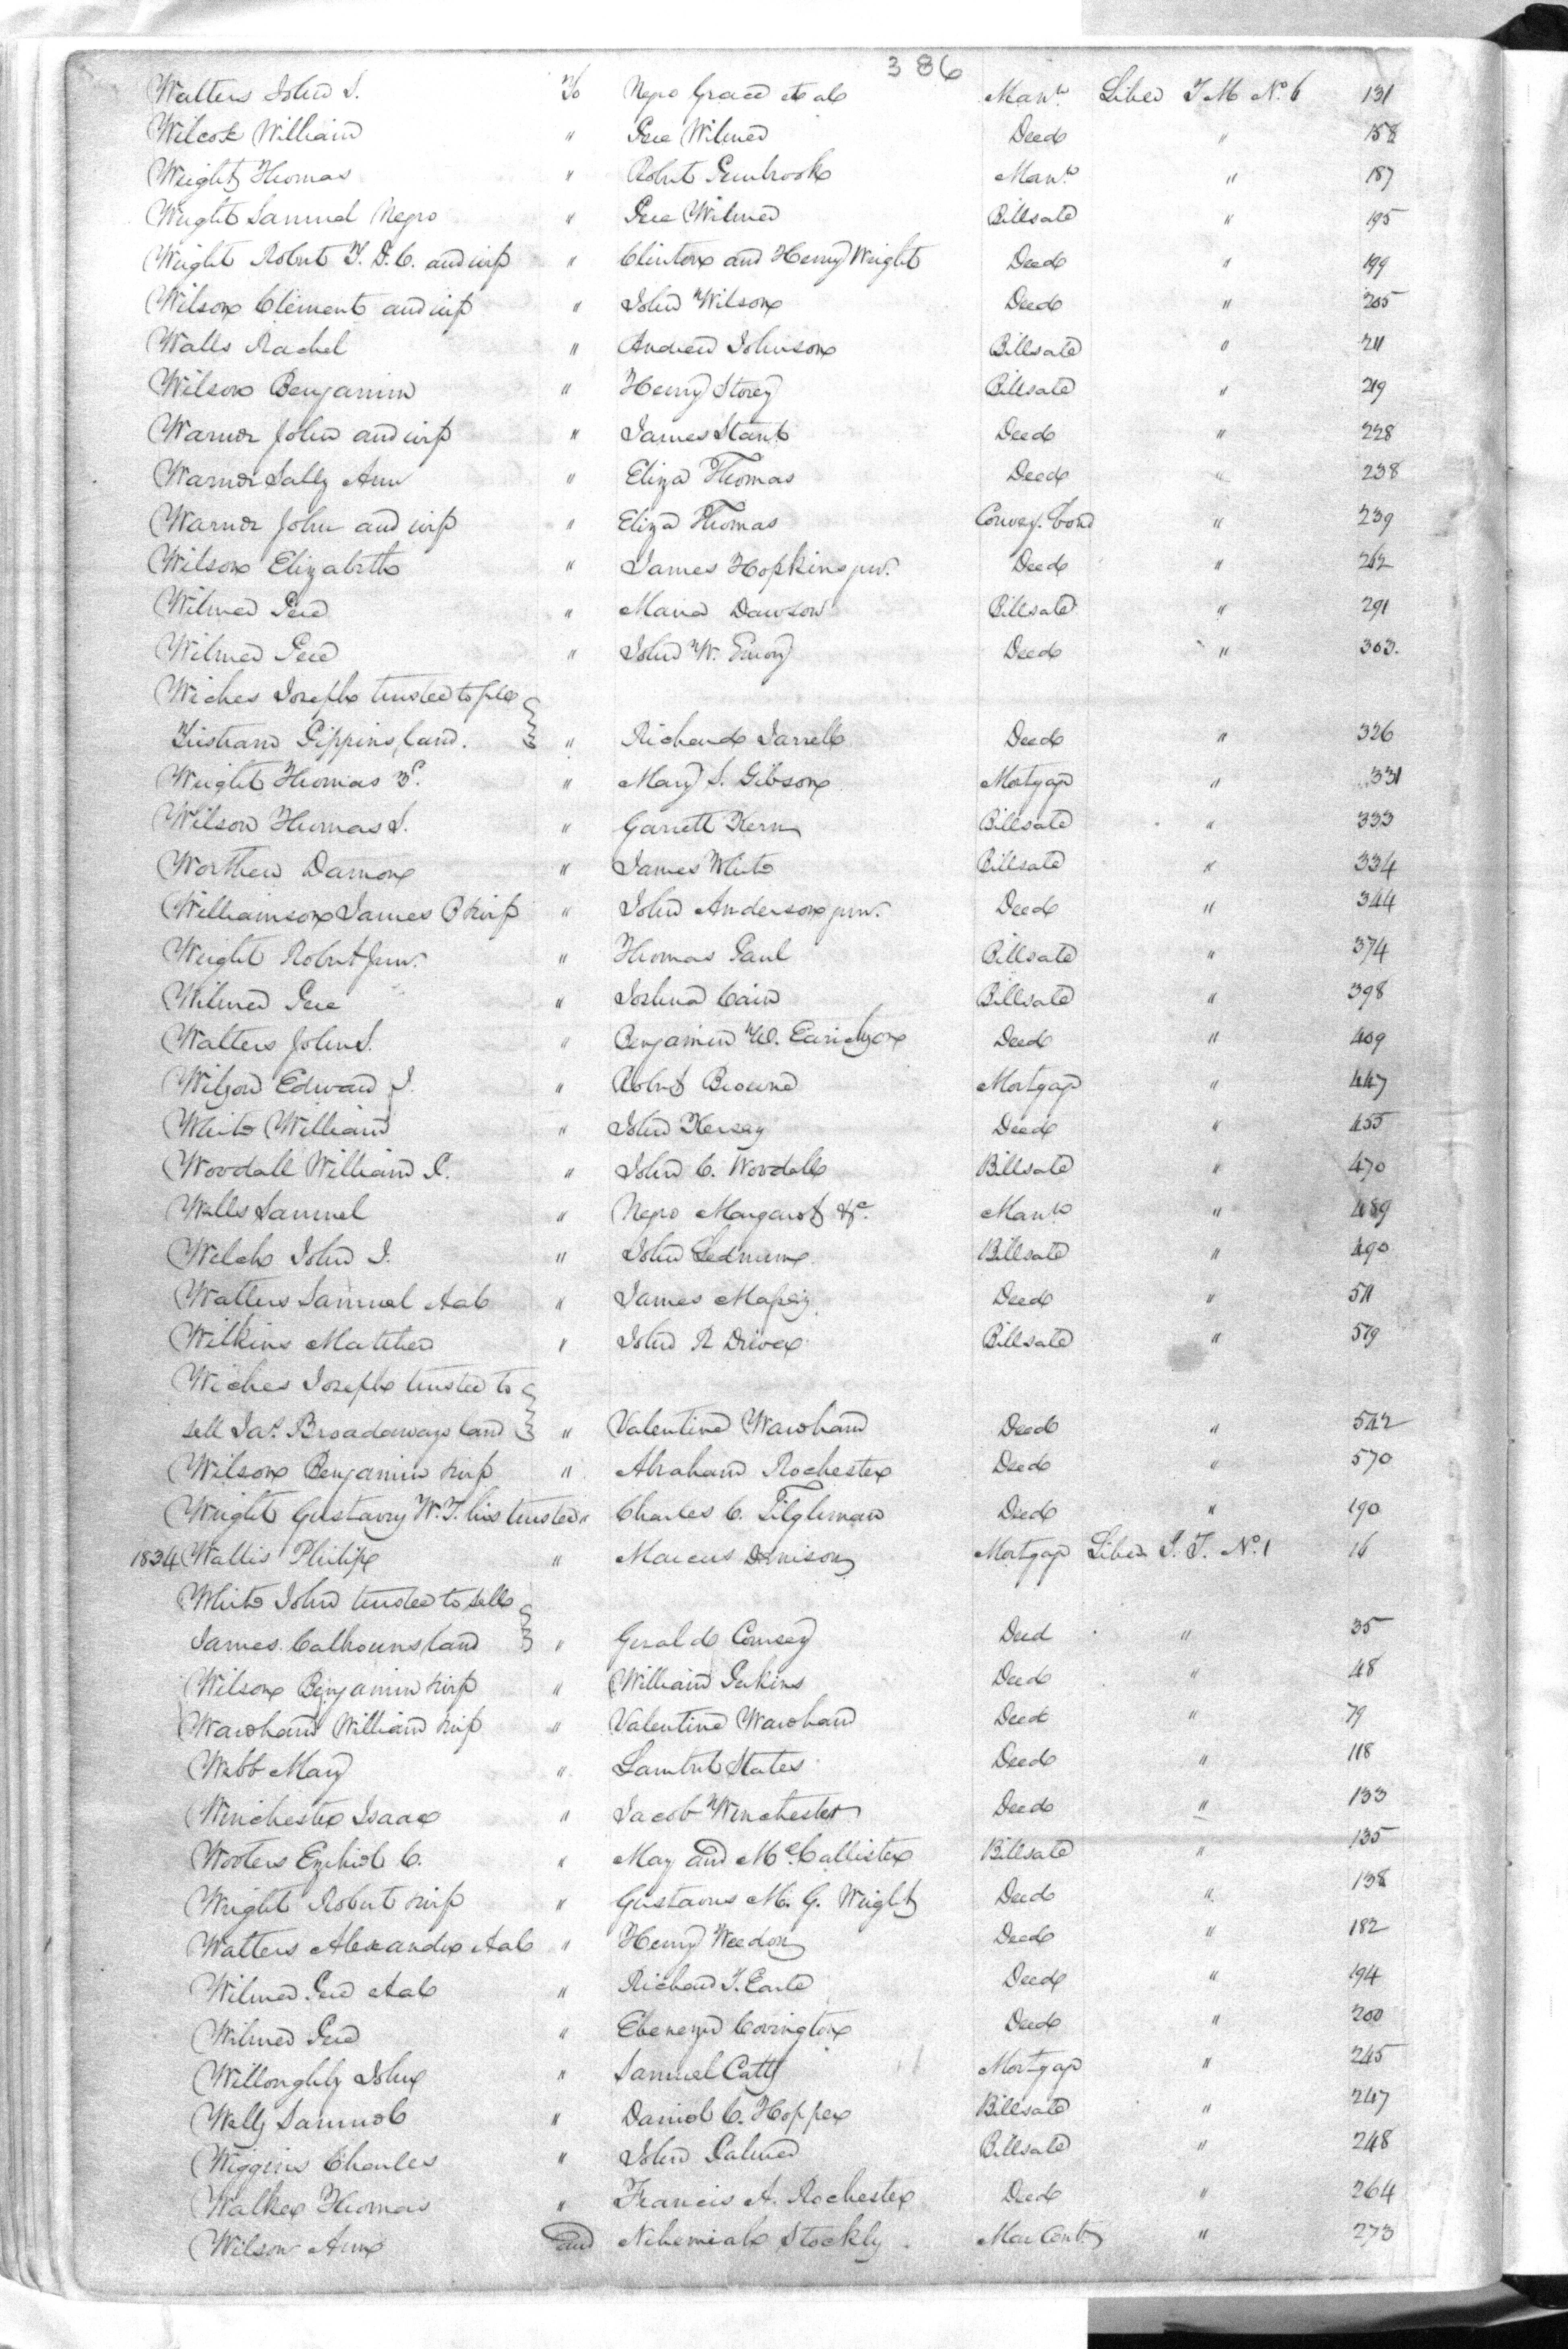 386
Walters John S. To Negro Grace et al Mann. Liber T M No. 6 131
Wilcox William " Pere Wilmer Deed " 158
Wright Thomas " Robert Pembrook Mann. " 187
Wright Samuel Negro " Pere Wilmer Billsale " 195
Wright Robert T. G. C. and wife " Clinton and Henry Wright Deed " 199
Wilson Clement and wife " John Wilson Deed " 205
Walls Rachel " Andrew Johnson Billsale " 211
Wilson Benjamin " Henry Storey Billsale " 219
Warner John and wife " James Stant Deed " 228
Warner Sally Ann " Eliza Thomas Deed " 238
Warner John and wife " Eliza Thomas Convey. bond " 239
Wilson Elizabeth " James Hopkins jun. Deed " 262
Wilmer Pere " Maria Dawson Billsale " 291
Wilmer Pere " John W. Emory Deed " 303.
Wickes Joseph trustee to sell
Tristram Pippins land. " Richard Jarrell Deed " 326
Wright Thomas 3d. " Mary S. Gibson Mortgage " 331
Wilson Thomas S. " Garrett Kern Billsale " 333
Worthen Damon " James White Billsale " 334
Williamson James B & wife " John Anderson jun. Deed " 344
Wright Robert Jun. " Thomas Paul Billsale " 374
Wilmer Pere " Joshua Cain Billsale " 398
Walters John S. " Benjamin W. Earickson Deed " 409
Wilson Edward J. " Robert Browne Mortgage " 447
White William " John Kersey Deed " 455
Woodall William P. " John C. Woodall Billsale " 470
Wells Samuel " Negro Margaret &c. Mann. " 489
Welch John J. " John Lednum Billsale " 490
Walters Samuel & al " James Massey Deed " 511
Wilkins Matthew " John R Driver Billsale " 519
Wickes Joseph trustee to
sell Jas. Broadaways land " Valentine Wareham Deed " 542
Wilson Benjamin & wife " Abraham Rochester Deed " 570
Wright Gustavus W. T. his trustee " Charles C. Tilghman Deed " 190
1834 Wallis Philip " Marcus Denison Mortgage Liber J. T. No. 1 16
White John trustee to sell
James Calhouns land " Gerald Coursey Deed " 35
Wilson Benjamin & wife " William Perkins Deed " 48
Wareham William & wife " Valentine Wareham Deed " 79
Webb Mary " Lambert States Deed " 118
Winchester Isaac " Jacob Winchester Deed " 133
Wooters Ezekiel C. " May and McCallister Billsale " 135
Wright Robert & wife " Gustavus M. G. Wright Deed " 138
Walters Alexander & al " Henry Weedon Deed " 182
Wilmer Pere & al " Richard T. Earle Deed " 194
Wilmer Pere " Ebenezer Covington Deed " 200
Willoughby John " Samuel Catts Mortgage " 245
Wells Samuel " Daniel C. Hopper Billsale " 247
Wiggins Charles " John Palmer Billsale " 248
Walker Thomas " Francis A. Rochester Deed " 264
Wilson Ann and Nehemiah Stockly Mar Cont. " 273